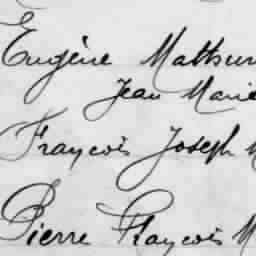 Eugène Mathur
Jean Marie
François Joseph M
Pierre François M